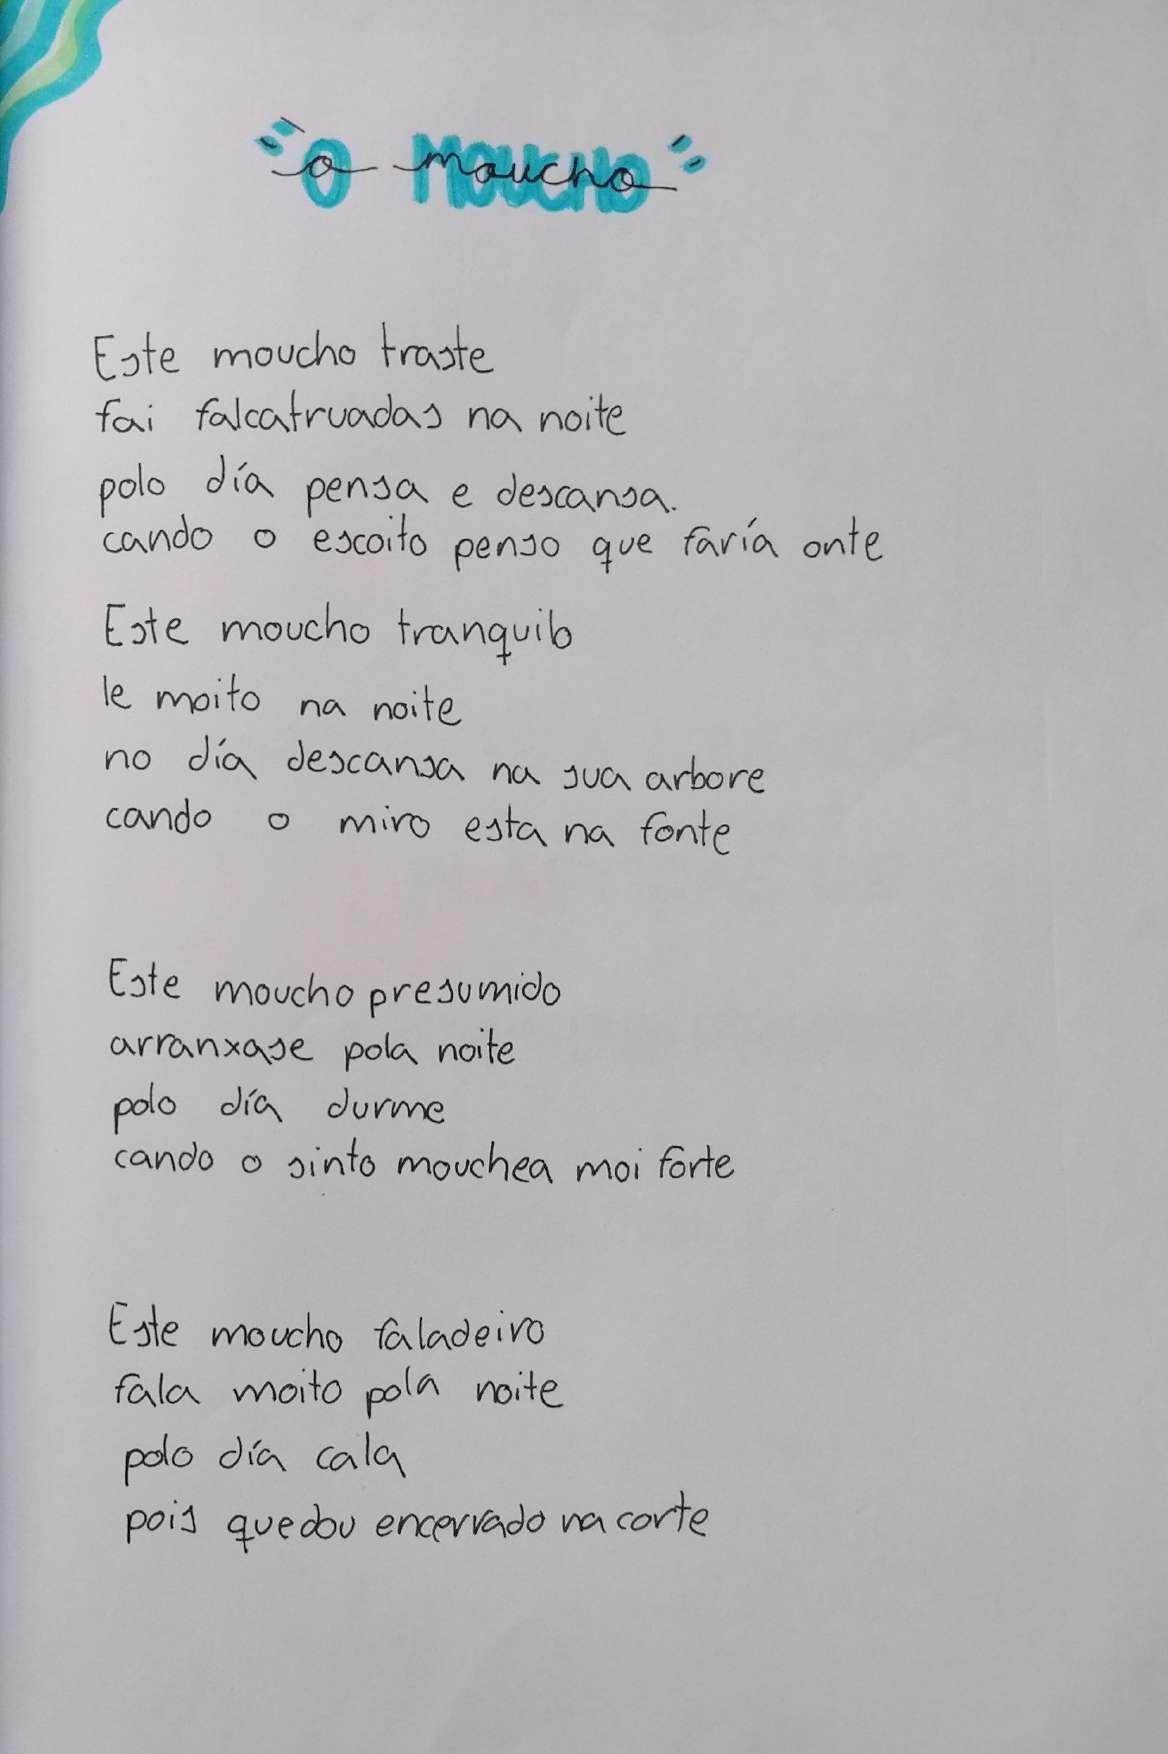 "O MOUCHO"
Este moucho traste
fai falcatruadas na noite
polo día pensa e descansa.
cando o escoito penso que faría onte
Este moucho tranquilo
le moito na noite
no día descansa na sua arbore
cando o miro esta na fonte
Este moucho presumido
arranxase pola noite
polo día durme
cando o sinto mouchea moi forte
Este moucho faladeiro
fala moito pola noite
polo día cala
pois quedou encerrado na corte